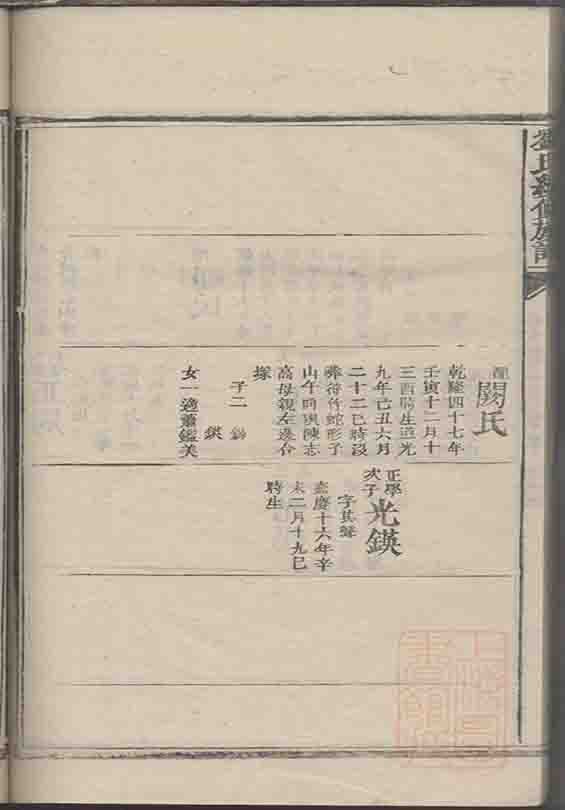 氏續修族譜
配
闕氏
乾隆四十七年
壬寅十二月十
三酉時生道光
九年己丑六月
二十二巳時沒
葬符竹蛇形子
山午向與陳志
高母親左邊合
塚
子二
鍈
女一適蕭鑑美
正學
次子
光鍈
字其聲
嘉慶十六年辛
未二月十九巳
時生
上海
書館